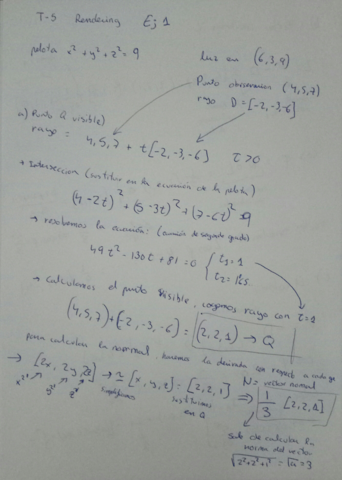 T-5 Rendering Ej 1
pelota x² + y² + z² = 9
luz en (6,3,9)
Punto observación (4,5,7)
rayo D = [-2,-3,-6]
a) (Punto Q visible)
rayo = 4,5,7 + t[-2,-3,-6] t>0
→ Intersección (sustituir en la ecuación de la pelota)
(4-2t)² + (5-3t)² + (7-6t)² = 9
→ resolvemos la ecuación: (ecuación de segundo grado)
49t² - 130t + 81 = 0 { t₁ = 1
t₂ =
→ calculamos el punto visible, cogemos rayo con t=1
(4,5,7)+[-2,-3,-6] = (2,2,1) → Q
para calcular la normal, hacemos la derivada con respecto a cada
→ [2x, 2y, 2z] → ≈ [x,y,z] = [2,2,1] ⇒ 1/3 [2,2,1]
N = vector normal
x² y² z² simplificamos sustituimos
en Q
sale de calcular la
norma del vector
√2²+2²+1² = √9 = 3